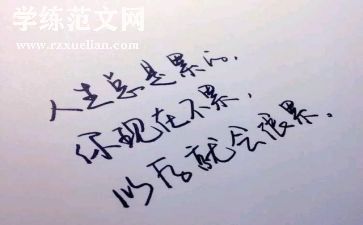 学练范文网
www.rzxuelian.com
人生总是累的.
你现在不累,
以后就会很累.